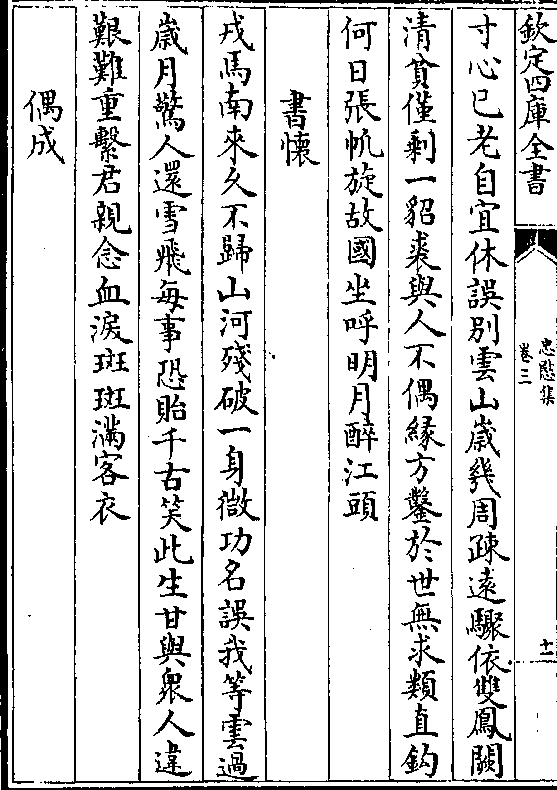 欽定四庫全書
忠愍集
卷三
十一
寸心已老自宜休誤別雲山歲幾周疎遠驟依雙鳳闕
清貧僅剩一貂裘與人不偶緣方鑿於世無求類直鈎
何日張帆旋故國坐呼明月醉江頭
書懷
戎馬南來久不歸山河殘破一身微功名誤我等雲過
歲月驚人還雪飛每事恐貽千古笑此生甘與衆人違
艱難重繫君親念血淚斑斑滿客衣
偶成